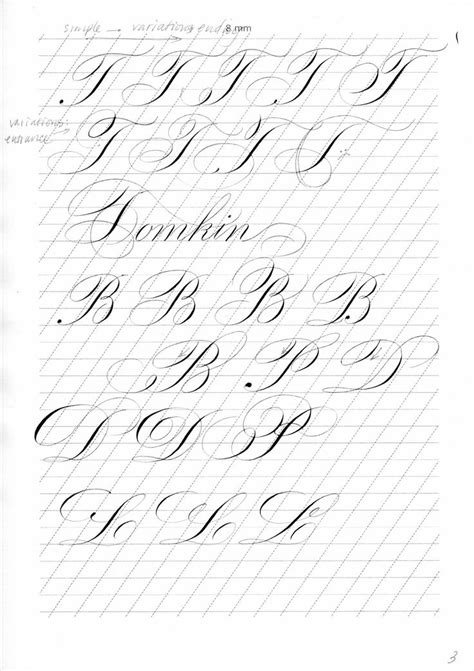 simple → variations 8 mm
1
T T T T T
variations: →
entrance
T T T T
Tomkin
B B B B
B P D
D D P
L L L
3